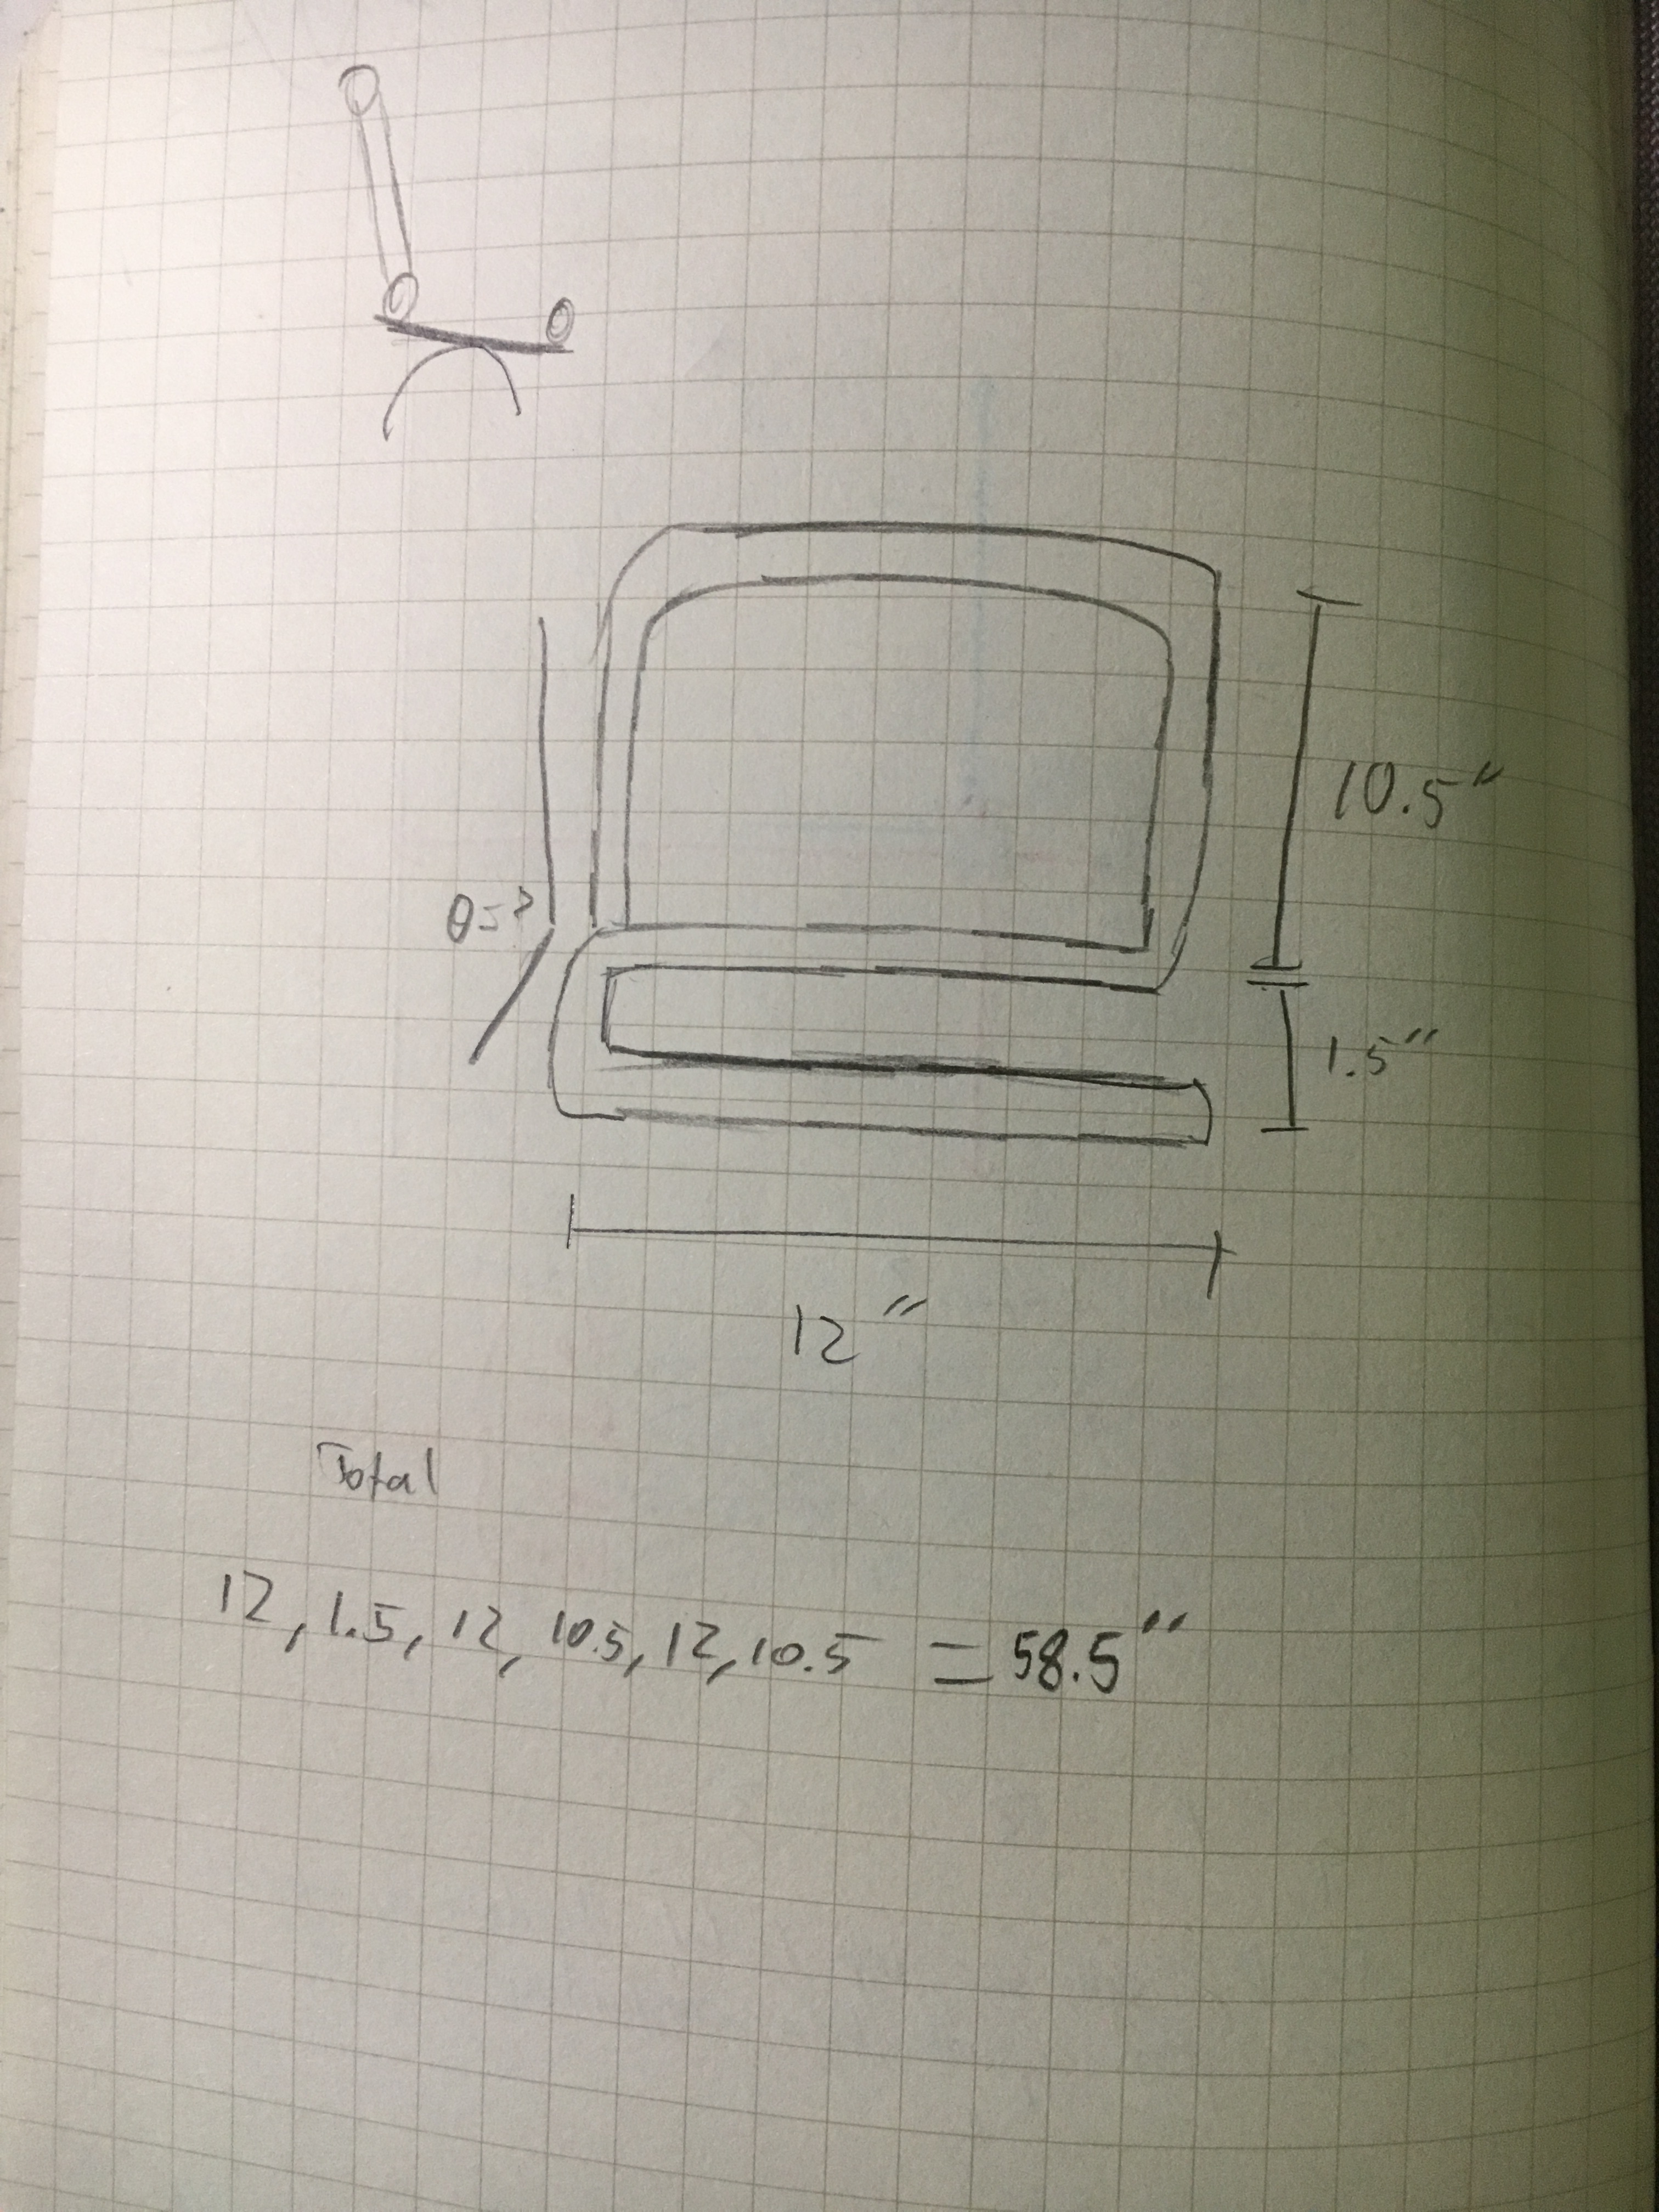 10.5"
θ=?
1.5"
12"
Total
12, 1.5, 12, 10.5, 12, 10.5 = 58.5"